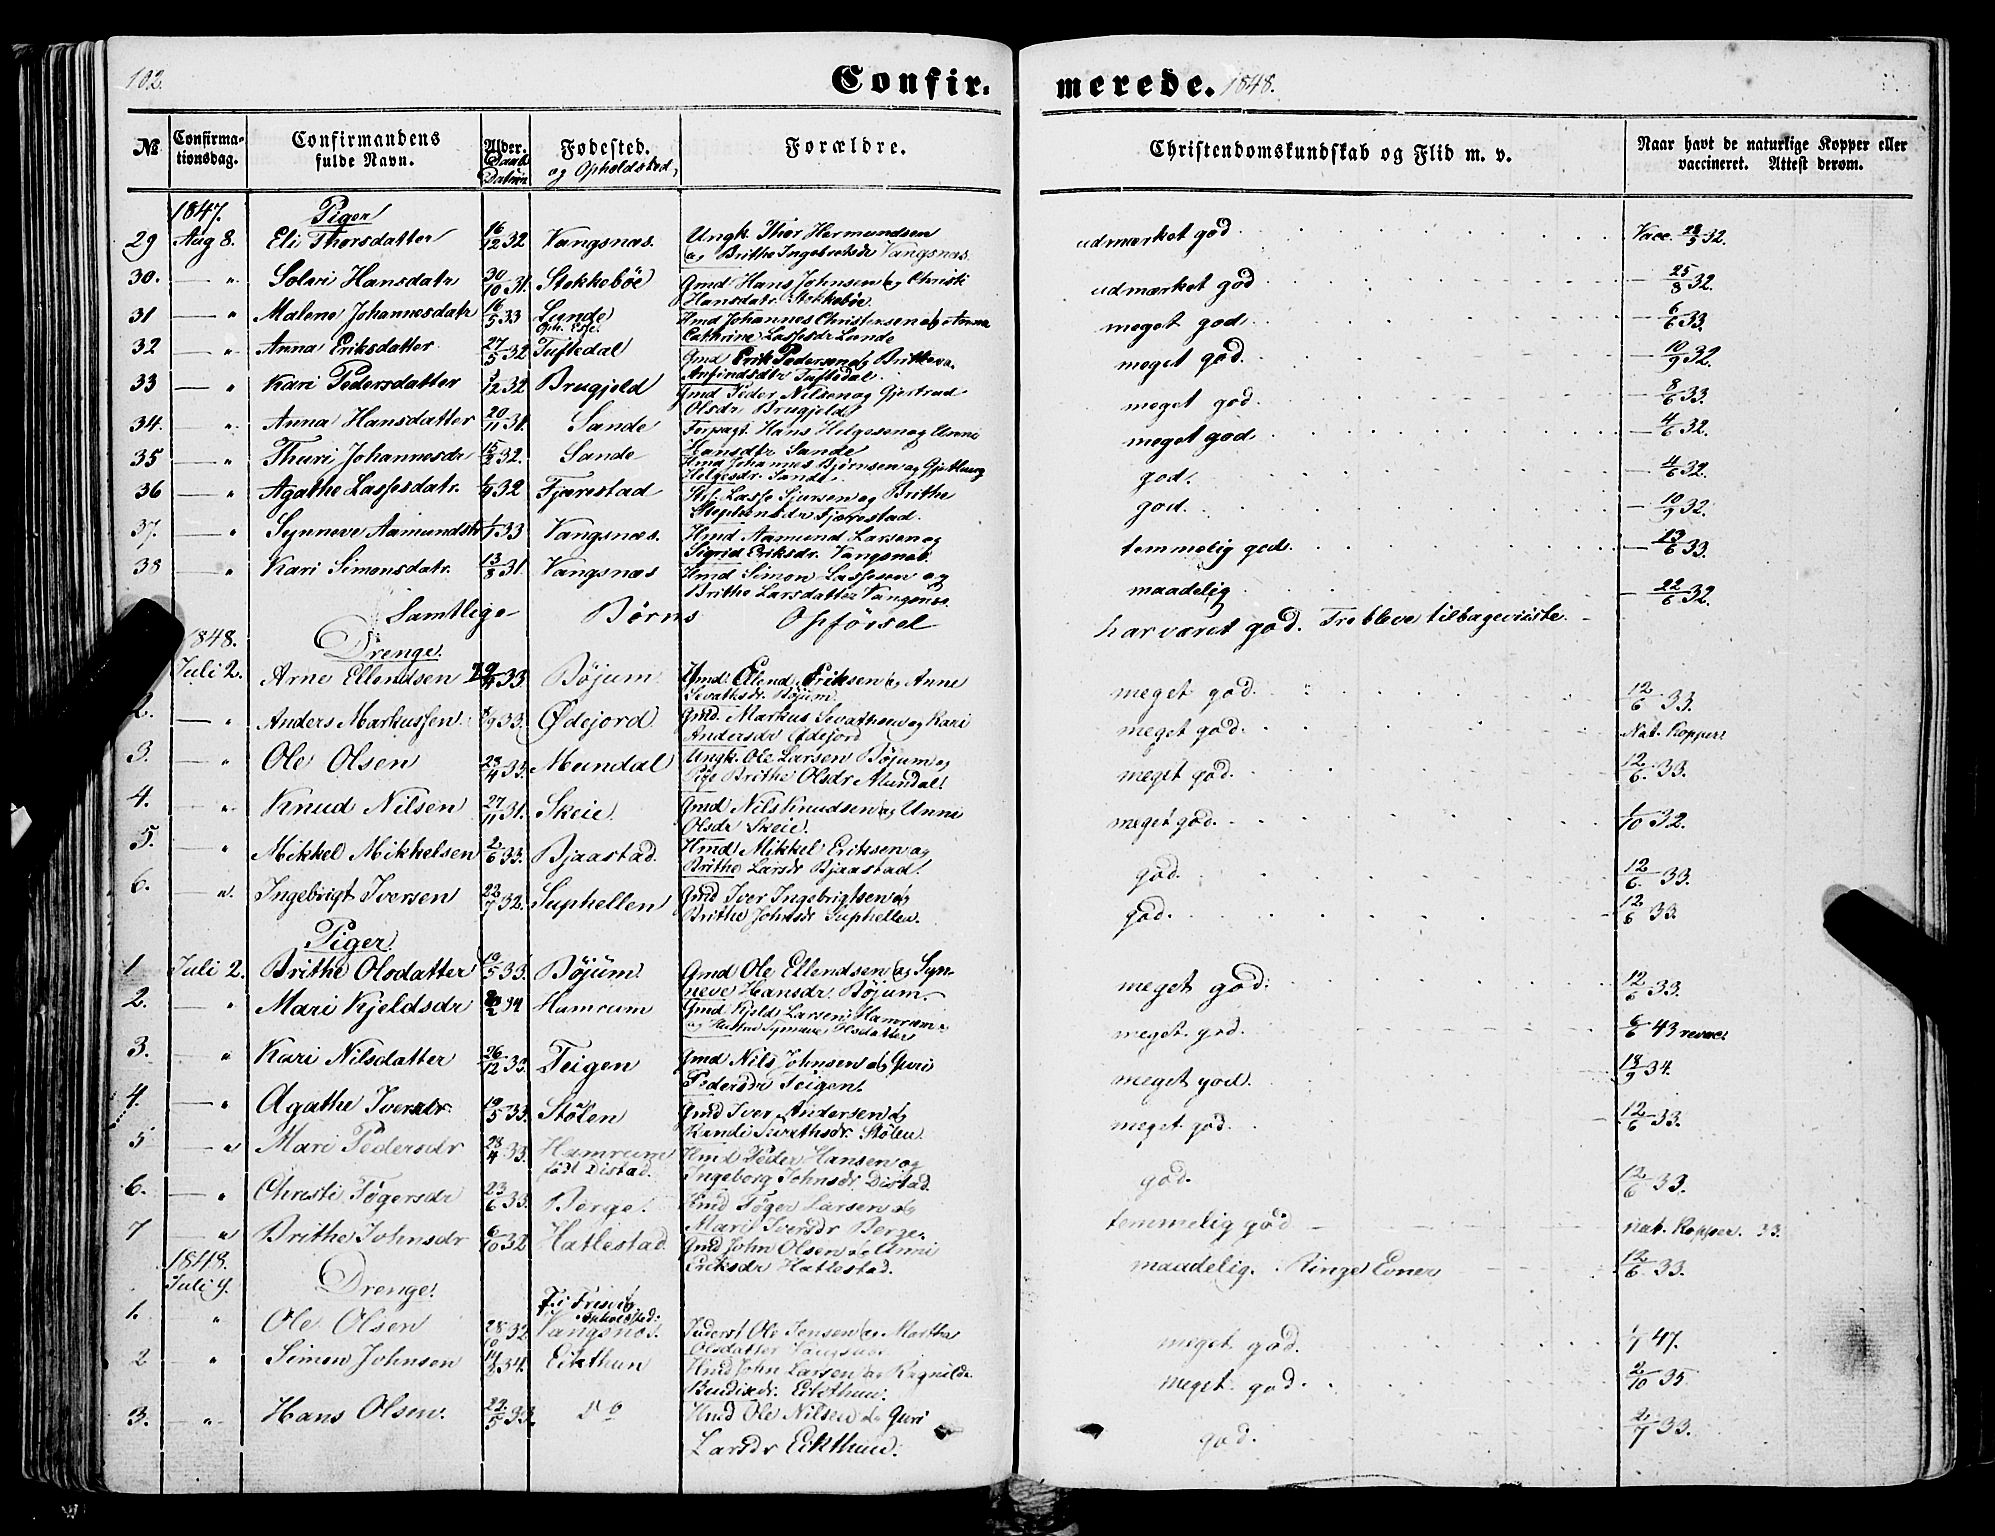 102.
Confirmerede. 1848.
№ Confirmationsdag. Confirmandens fulde Navn. Alder. Daabs Datum Fødested. og Opholdssted, Forældre. Christendomskundskab og Flid m. v. Naar havt de naturlige Kopper eller vaccineret. Attest derom.
1847. Piger
29 Aug 8. Eli Thorsdatter 16/12 32 Vangsnæs. Ungk. Thor Hermundsen og Brithe Ingebretsdr Vangsnæs. udmærket god Vacc. 28/5 32.
30. — " Solvi Hansdatr 30/10 31. Stokkebøe Gmd Hans Johnsen og Christi Hansdatr. Stokkebøe. udmærket god — 25/8 32.
31 — " Malene Johannesdatr 16/5 33 Lunde Hmd Johannes Christensen og Anna Cathrine Lassesdr Lunde meget god. — 6/6 33.
32 — " Anna Eriksdatter 27/5 32 Tuftedal Gmd Erik Pedersen og Britheva Anfindsdtr Tuftedal. meget god. — 10/9 32.
33 — " Kari Pedersdatter 12 32 Brugjeld Gmd Peder Nilsen og Gjertrud Olsdr Brugjeld meget god. — 8/6 33.
34. — " Anna Hansdatter 20/11 31. Sande Forpagt. Hans Helgesen og Unni Hansdtr Sande meget god — 4/6 32.
35 — " Thuri Johannesdr 15/2 32. Sande Hmd Johannes Bjørnsen og Helgesdr. Sande. god. — 4/6 32.
36 — " Agathe Lassesdatr. 9 32 Fjærestad Lasse Sjursen og Brithe Stephensdr Fjærestad. god. — 10/9 32.
37. — " Synneve Aamundsdtr 33 Vangsnæs. Hmd Aamund Larsen og Sigrid Eriksdr. Vangsnæs. temmelig god. — 13/6 33.
38 — " Kari Simonsdatr. 13/8 31. Vangsnæs Hmd Simon Lassesen og Brithe Larsdatter Vangsnæs. maadelig — 22/6 32.
Samtlige Børns Opførsel har været god. Tre bleve tilbageviiste.
1848. Drenge.
Juli 2. Arne Ellendsen 33 Bøjum Gmd. Ellend Eriksen og Anne Sevathsdr. Bøjum. meget god. 12/6 33.
2. — " Anders Markussen. 9 33. Ødejord Gmd. Markus Sevathsen og Kari Andersdr Ødejord meget god. Nat. Kopper
3. " Ole Olsen 28/4 33. Mundal Ungk. Ole Larsen Bøjum og Pige Brithe Olsdr Mundal. meget god. 12/6. 33.
4. — " Knud Nilsen 27/11 31. Skeie. Gmd Nils Knudsen og Unni Olsdr Skeie. meget god. 1/10 32.
5. " Mikkel Mikkelsen 2/6 33. Bjaastad. Hmd Mikkel Eriksen og Brithe Larsdr Bjaastad. god. 12/6. 33.
6. — " Ingebrigt Iversen 22/7 32. Suphellen Gmd Iver Ingebrigtsen og Brithe Johnsdr Suphellen. god. 12/6 33.
Piger
1 Juli 2. Brithe Olsdatter 19/5 33. Bøjum. Gmd Ole Ellendsen og Synneve Hansdr. Bøjum. meget god. 12/6 33.
2. — " Mari Kjeldsdr 2 34 Hamrum Gmd. Kjeld Larsen Hamrum og Hustru Synneve Olsdatter meget god. 6/6 43 revac.
3. — " Kari Nilsdatter 26/12 33. Teigen Gmd Nils Johnsen og Guri Pedersdr Teigen. meget god. 18/9 34.
4. — " Agathe Iversdr. 19/5 33. Stølen Gmd Iver Andersen og Randi Sevathsdr. Stølen. meget god. 12/6 33.
5 — " Mari Pedersdr 28/4 33. Hamrum født Distad. Hmd Peder Hansen og Ingeborg Johnsdr. Distad. god. 12/6 33.
6. — " Christi Tøgersdr 23/6 33. Berge. Hmd Tøger Larsen og Mari Iversdr Berge. temmelig god nat. Kopper. 33.
7 — " Brithe Johnsdr 6/10 32 Hatlestad. Gmd John Olsen og Unni Eriksdr Hatlestad. maadelig. Ringe Evner 12/6 33.
1848.
Juli 9. Drenge.
1. " Ole Olsen 28 32 F. i Fresvig. Opholdssted: Vangsnæs. Inderst Ole Jensen og Martha Olsdatter Vangsnæs meget god. 1/7 47.
2 " Simon Johnsen 34. Eikthun Hmd John Larsen og Ragnilde Bendixdr. Eikthun. meget god. 2/10 35
3. — " Hans Olsen. 22/5 33. Do Hmd Ole Nilsen og Guri Larsdr Eikthun. god. 2/7 33.